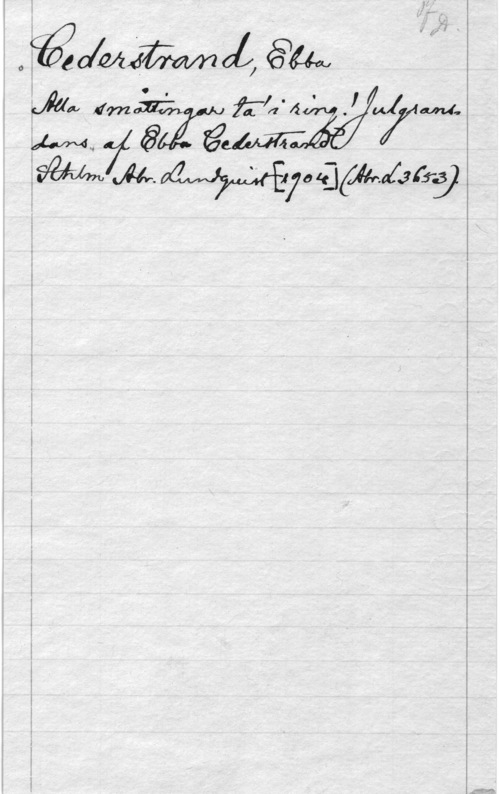 Cederstrand, Ebba
Alla småttingar ta' i ring! Julgrans-
dans. af Ebba Cederstrand
Sthlm Abr. Lundquist [1904] (Abr. L. 3653).